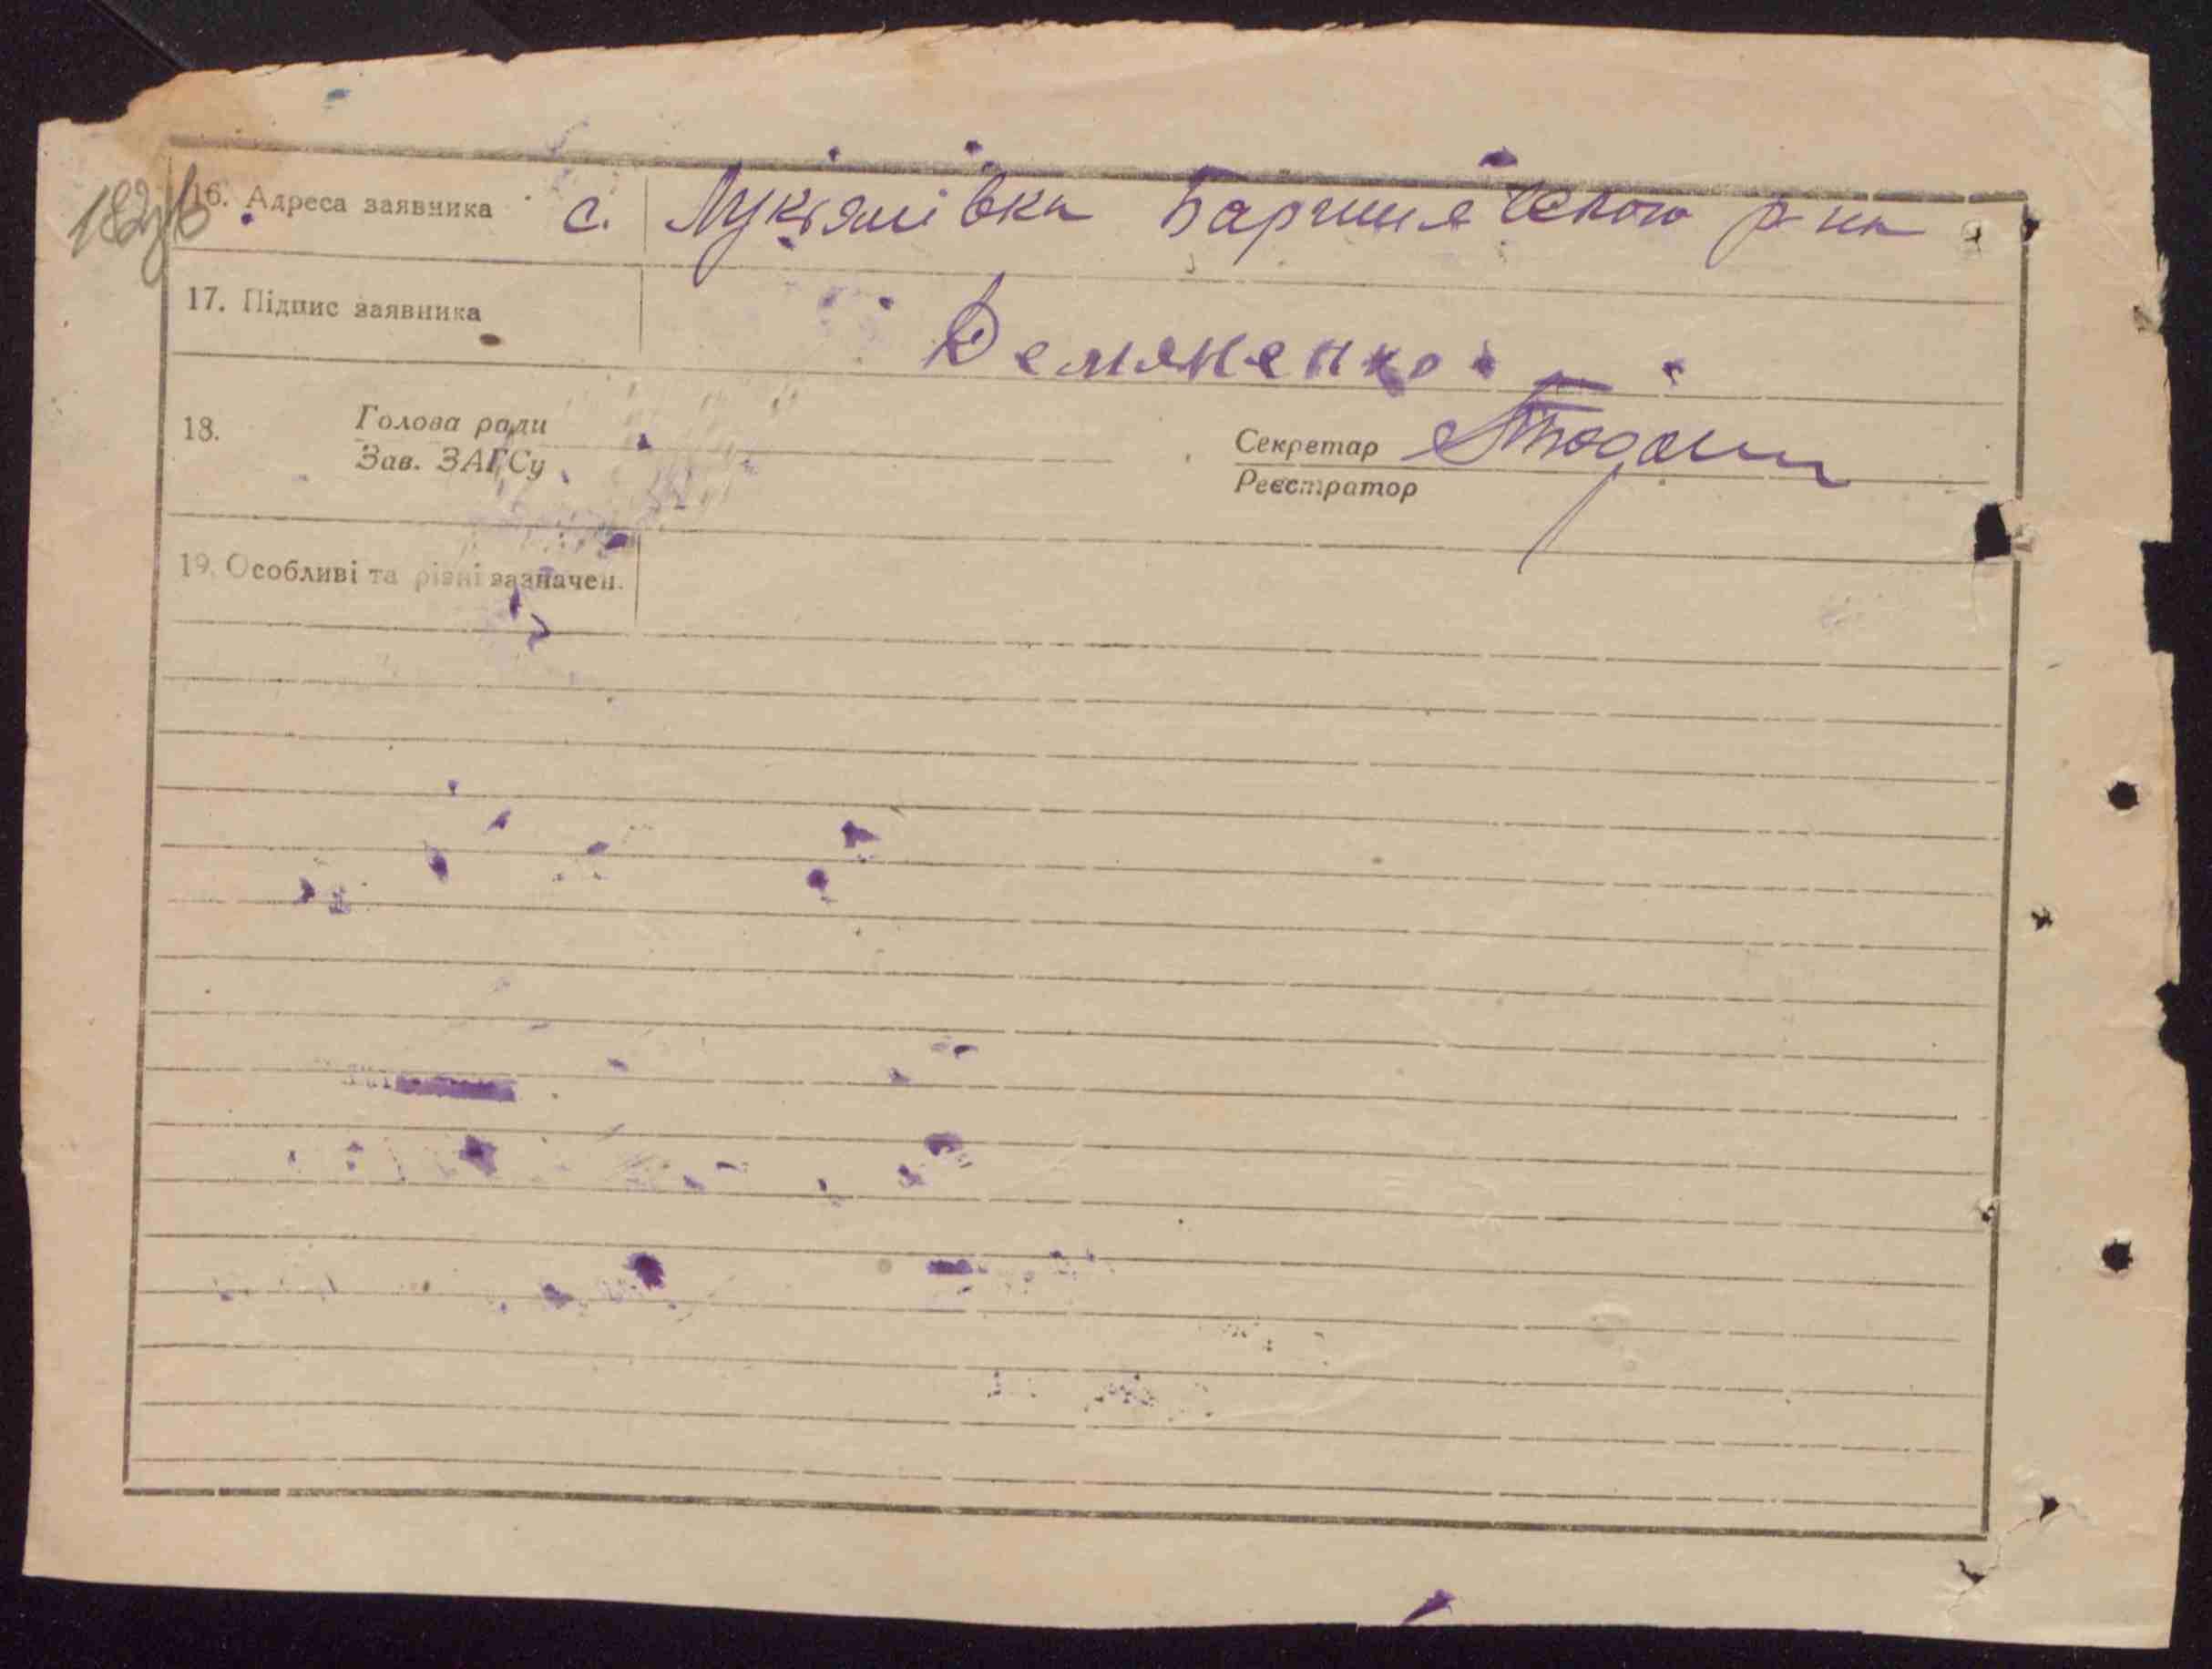 16. Адреса заявника с. Лукьянівка Баришевського р-на
17. Підпис заявника Демяненко
18. Голова ради
Зав. ЗАГСу
Секретар
Реєстратор
19. Особливі та різні зазначен.